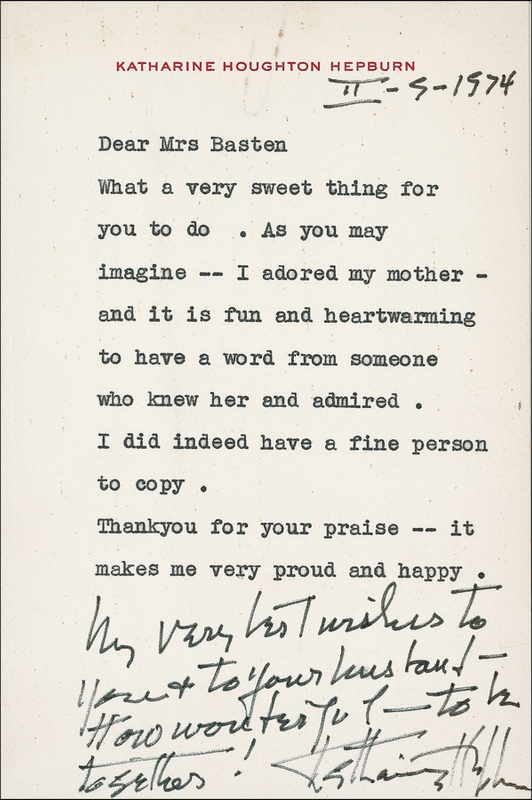 KATHARINE HOUGHTON HEPBURN
II - 5 - 1974
Dear Mrs Basten
What a very sweet thing for
you to do . As you may
imagine -- I adored my mother -
and it is fun and heartwarming
to have a word from someone
who knew her and admired .
I did indeed have a fine person
to copy .
Thankyou for your praise -- it
makes me very proud and happy .
My very best wishes to
you & to your husband -
How wonderful - to be
together! Katharine Hepburn